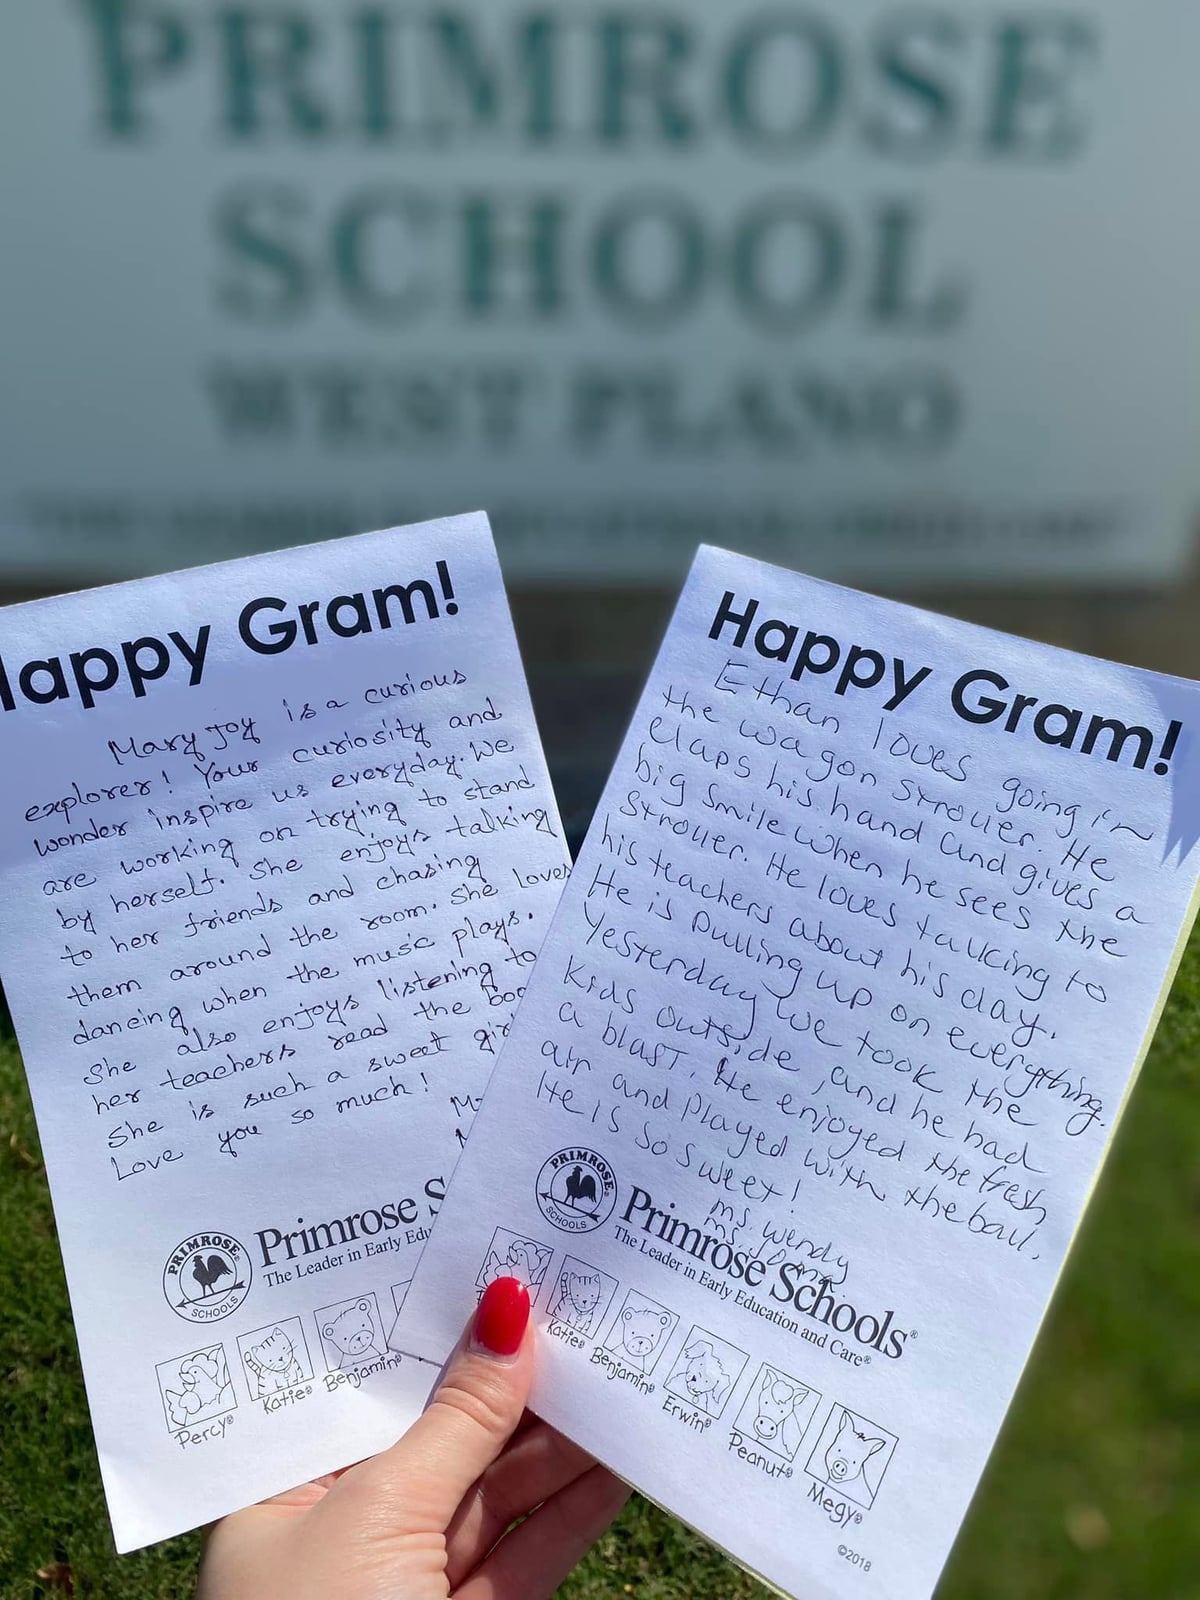 PRIMROSE
SCHOOL
WEST PLANO
Happy Gram!
Mary Joy is a curious
explorer! Your curiosity and
wonder inspire us everyday. We
are working on trying to stand
by herself. She enjoys talking
to her friends and chasing
them around the room. She loves
dancing when the music plays.
She also enjoys listening to
her teachers read the boo
She is such a sweet gir
Love you so much!
PRIMROSE
SCHOOLS
Primrose S
The Leader in Early Edu
Percy® Katie® Benjamin®
Happy Gram!
Ethan loves going in
the wagon stroller. He
claps his hand and gives a
big smile when he sees the
stroller. He loves talking to
his teachers about his day.
He is pulling up on everything.
Yesterday we took the
kids outside, and he had
a blast. He enjoyed the fresh
air and played with the ball.
He is so sweet!
Ms. Wendy
Ms.
PRIMROSE
SCHOOLS
Primrose Schools®
The Leader in Early Education and Care®
Katie® Benjamin® Erwin® Peanut® Megy®
©2018